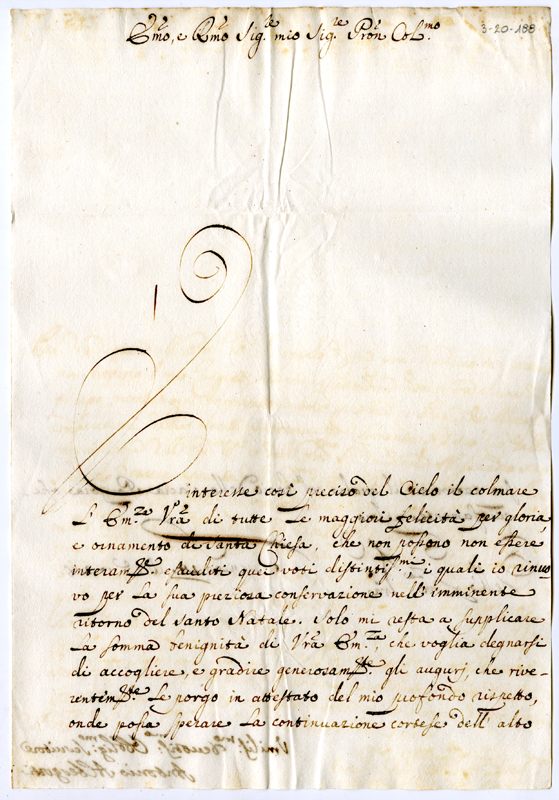 3-20-188
Em̃o, e Rm̃o Sig.re mio Sig.re Pron̄ Col.mo
È interesse così preciso del Cielo il colmare
l'Em.ze Vrã di tutte le maggiori felicità per gloria
e ornamento di Santa Chiesa, che non possono non essere
interam.te esauditi quei voti distintiss.mi, i quali io rinuo-
vo per la sua preziosa conservazione nell'imminente
ritorno del Santo Natale. Solo mi resta a supplicare
la somma benignità di Vrã Em.ze, che voglia degnarsi
di accogliere, e gradire generosam.te gli augurj, che rive-
rentem.te le porgo in attestato del mio profondo rispetto,
onde possa sperare la continuazione cortese dell'alto